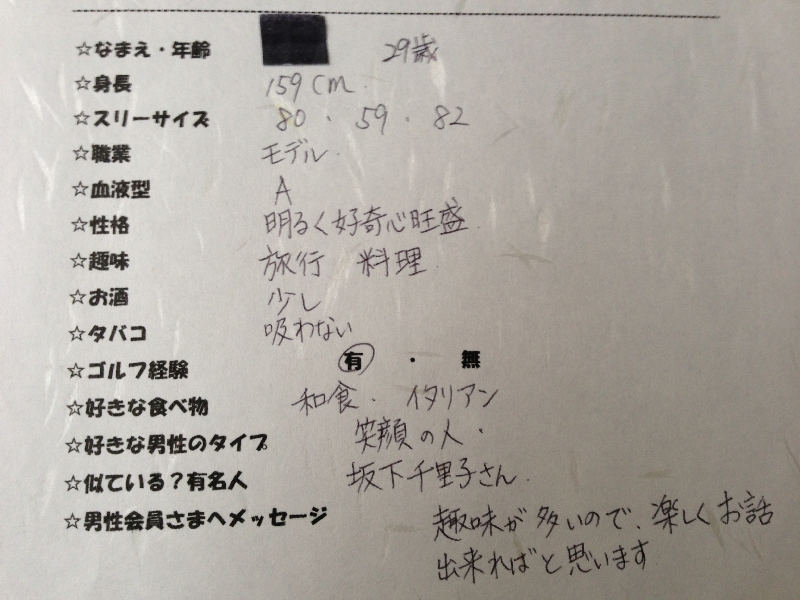 ☆なまえ・年齢 29歳
☆身長 159cm.
☆スリーサイズ 80・59・82
☆職業 モデル.
☆血液型 A
☆性格 明るく好奇心旺盛
☆趣味 旅行 料理
☆お酒 少し
☆タバコ 吸わない
☆ゴルフ経験 有・無
☆好きな食べ物 和食. イタリアン
☆好きな男性のタイプ 笑顔の人.
☆似ている?有名人 坂下千里子さん.
☆男性会員さまへメッセージ 趣味が多いので、楽しくお話
出来ればと思います